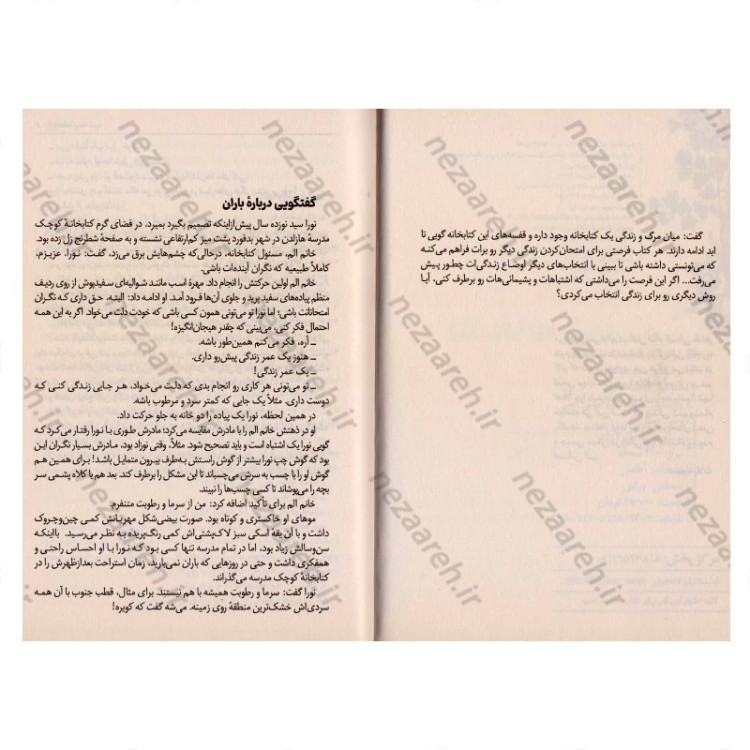 گفت: میان مرگ و زندگی یک کتابخانه وجود داره و قفسه‌های این کتابخانه گویی تا
اید ادامه دارند. هر کتاب فرصتی برای امتحان‌کردن زندگی دیگر رو برات فراهم می‌کنه
که می‌تونستی داشته باشی تا ببینی با انتخاب‌های دیگر اوضاع زندگی‌ات چطور پیش
می‌رفت... اگر این فرصت را می‌داشتی که اشتباهات و پشیمانی‌هات رو برطرف کنی، آیا
روش دیگری رو برای زندگی انتخاب می‌کردی؟
گفتگویی دربارهٔ باران
نورا سید نوزده سال پیش‌ازاینکه تصمیم بگیرد بمیرد، در فضای گرم کتابخانهٔ کوچک
مدرسهٔ هازلدن در شهر بدفورد پشت میز کم‌ارتفاعی نشسته و به صفحهٔ شطرنج زل زده بود.
خانم الم، مسئول کتابخانه، درحالی‌که چشم‌هایش برق می‌زد، گفت: نورا، عزیزم،
کاملاً طبیعیه که نگران آینده‌ات باشی.
خانم الم اولین حرکتش را انجام داد. مهرهٔ اسب مانند شوالیه‌ای سفیدپوش از روی ردیف
منظم پیاده‌های سفید پرید و جلوی آن‌ها فرود آمد. او ادامه داد: البته، حق داری که نگران
امتحانات باشی؛ اما نورا تو می‌تونی همون کسی باشی که خودت دلت می‌خواد. اگر به این همه
احتمال فکر کنی، می‌بینی که چقدر هیجان‌انگیزه!
ـ آره، فکر می‌کنم همین‌طور باشه.
ـ هنوز یک عمر زندگی پیش‌رو داری.
ـ یک عمر زندگی!
ـ تو می‌تونی هر کاری رو انجام بدی که دلت می‌خواد، هر جایی زندگی کنی که
دوست داری. مثلاً یک جایی که کمتر سرد و مرطوب باشه.
در همین لحظه، نورا یک پیاده را دو خانه به جلو حرکت داد.
او در ذهنش خانم الم را با مادرش مقایسه می‌کرد؛ مادرش طوری با نورا رفتار می‌کرد که
گویی نورا یک اشتباه است و باید تصحیح شود. مثلاً، وقتی نوزاد بود، مادرش بسیار نگران این
بود که گوش چپ نورا بیشتر از گوش راستش به‌طرف بیرون متمایل باشد! برای همین هم
گوش او را با چسب به سرش می‌چسباند تا این مشکل را برطرف کند. بعد هم با کلاه پشمی سر
بچه را می‌پوشاند تا کسی چسب‌ها را نبیند.
خانم الم برای تأکید اضافه کرد: من از سرما و رطوبت متنفرم.
موهای او خاکستری و کوتاه بود. صورت بیضی‌شکل مهربانش کمی چین‌وچروک
داشت و با آن یقه اسکی سبز لاک‌پشتی‌اش کمی رنگ‌پریده به نظر می‌رسید. بااینکه
سن‌وسالش زیاد بود، اما در تمام مدرسه تنها کسی بود که نورا با او احساس راحتی و
همفکری داشت و حتی در روزهایی که باران نمی‌بارید، زمان استراحت بعدازظهرش را در
کتابخانهٔ کوچک مدرسه می‌گذراند.
نورا گفت: سرما و رطوبت همیشه با هم نیستند. برای مثال، قطب جنوب با آن همه
سردی‌اش خشک‌ترین منطقهٔ روی زمینه. می‌شه گفت که کویره!
nezaareh.ir
nezaareh.ir
nezaareh.ir
nezaareh.ir
nezaareh.ir
nezaareh.ir
nezaareh.ir
nezaareh.ir
nezaareh.ir
nezaareh.ir
nezaareh.ir
nezaareh.ir